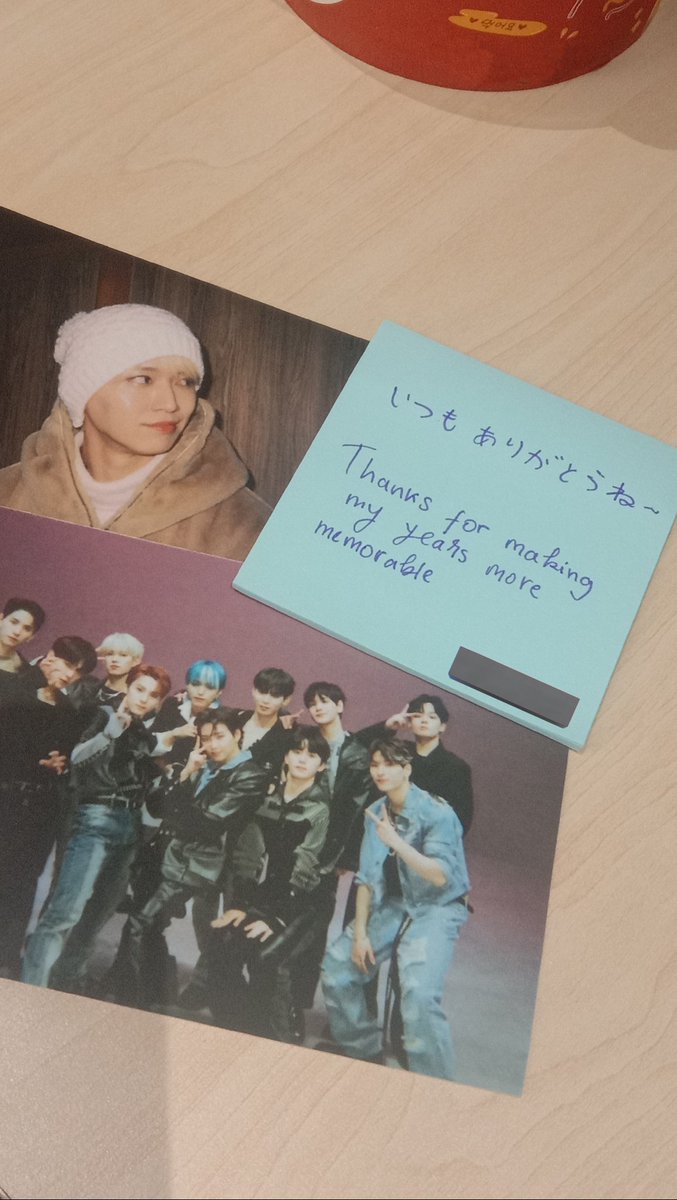 いつもありがとうね~
Thanks for making
my years more
memorable